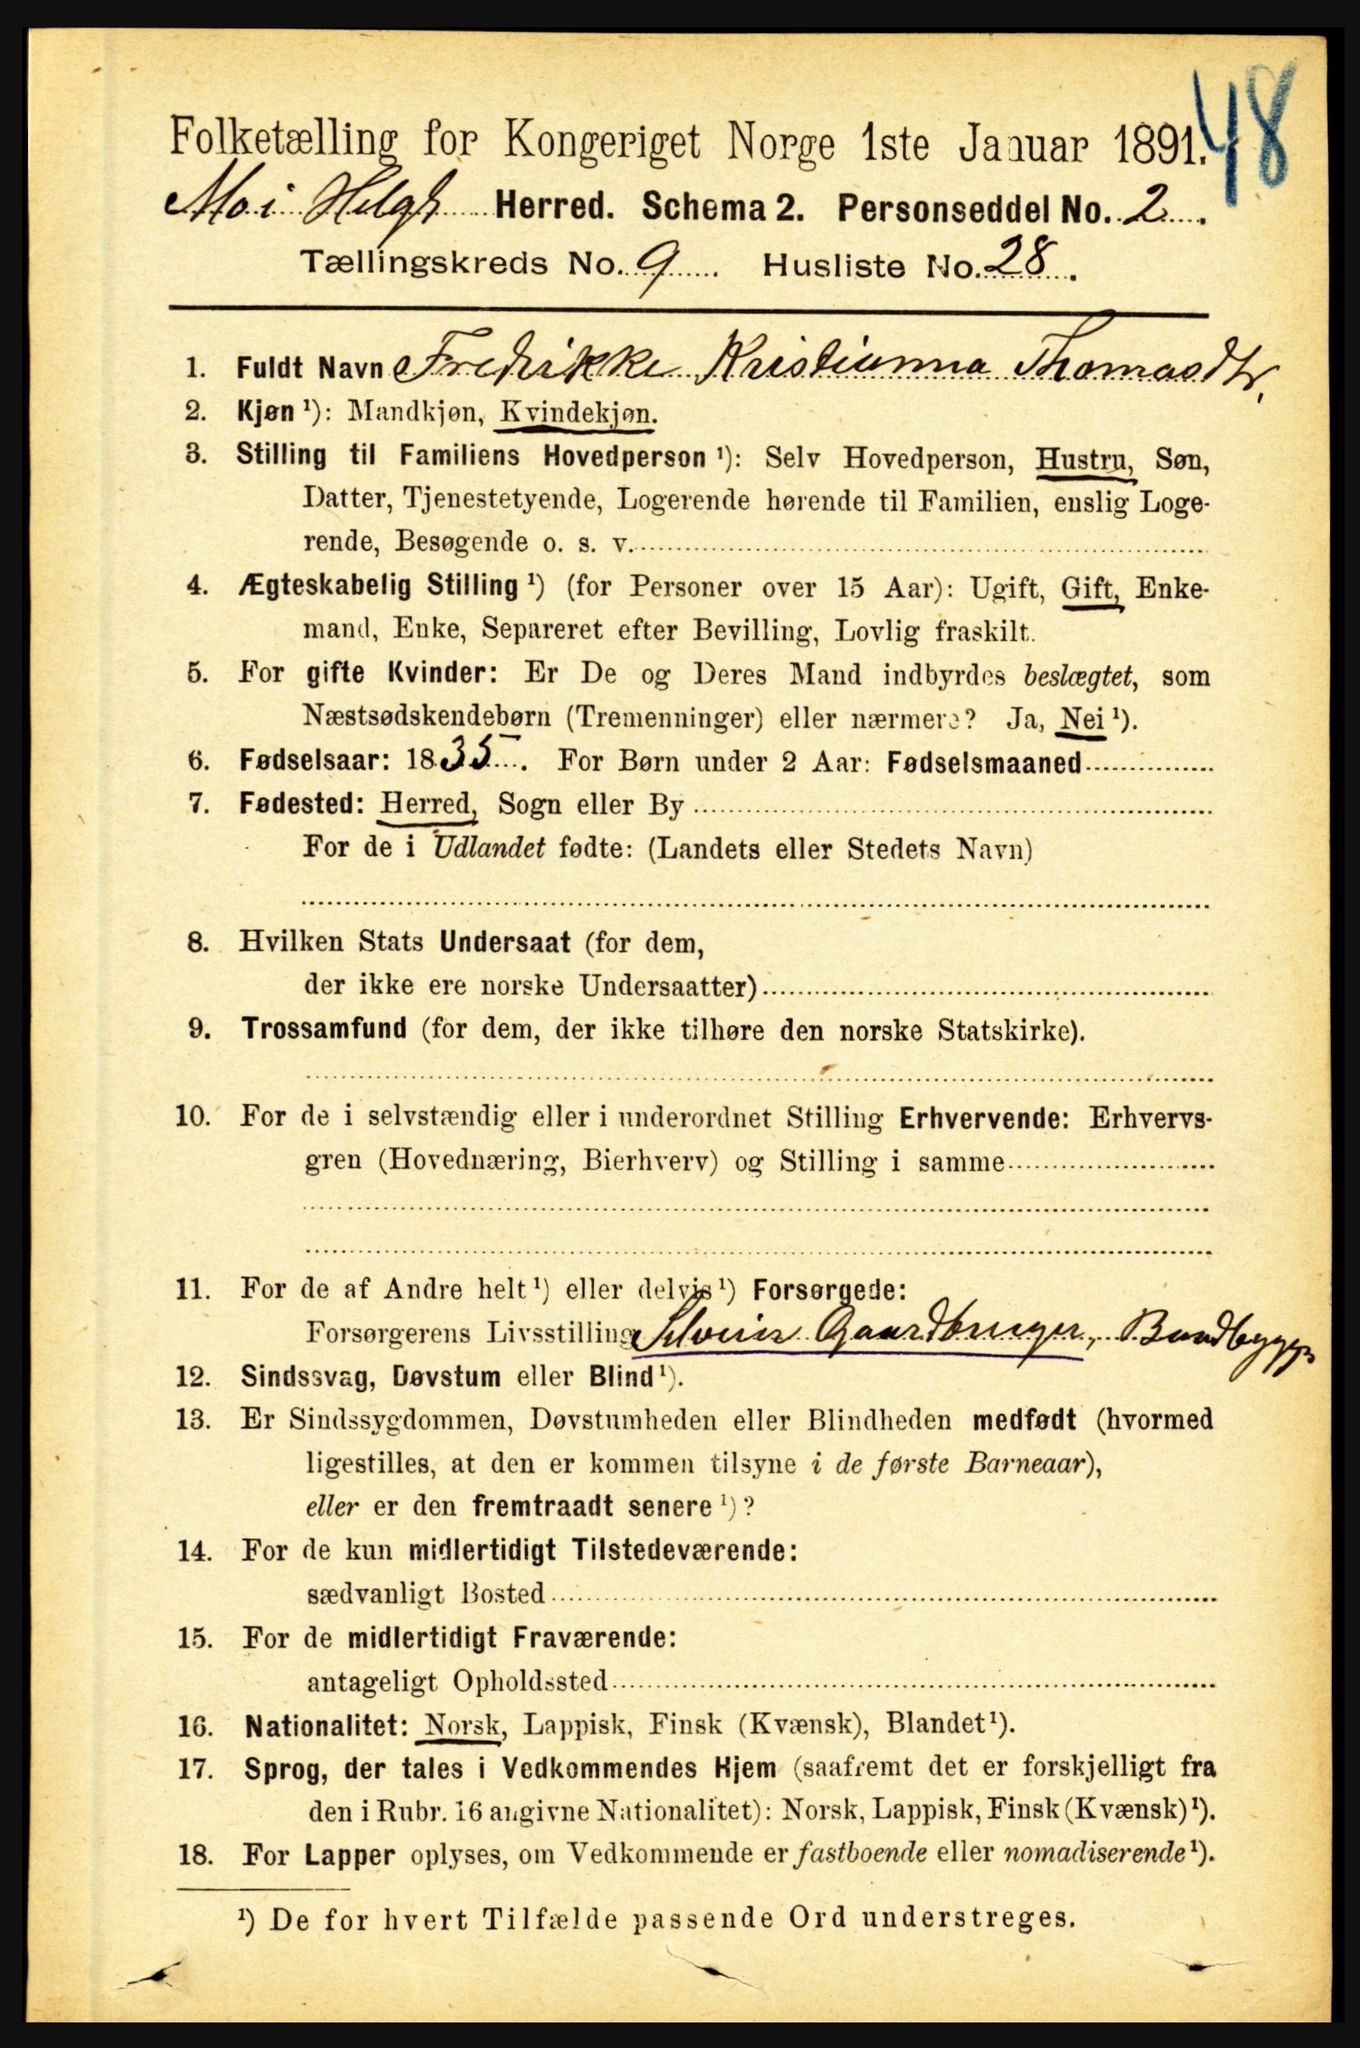 48
Folketælling for Kongeriget Norge 1ste Januar 1891.
Mo i Helgl Herred. Schema 2. Personseddel No. 2.
Tællingskreds No. 9 Husliste No. 28.
1. Fuldt Navn Fredrikke Kristianna Thomasdtr.
2. Kjøn ¹): Mandkjøn, Kvindekjøn.
3. Stilling til Familiens Hovedperson ¹): Selv Hovedperson, Hustru, Søn,
Datter, Tjenestetyende, Logerende hørende til Familien, enslig Loge-
rende, Besøgende o. s. v.
4. Ægteskabelig Stilling ¹) (for Personer over 15 Aar): Ugift, Gift, Enke-
mand, Enke, Separeret efter Bevilling, Lovlig fraskilt.
5. For gifte Kvinder: Er De og Deres Mand indbyrdes beslægtet, som
Næstsødskendebørn (Tremenninger) eller nærmere? Ja, Nei ¹).
6. Fødselsaar: 1835. For Børn under 2 Aar: Fødselsmaaned
7. Fødested: Herred, Sogn eller By
For de i Udlandet fødte: (Landets eller Stedets Navn)
8. Hvilken Stats Undersaat (for dem,
der ikke ere norske Undersaatter)
9. Trossamfund (for dem, der ikke tilhøre den norske Statskirke).
10. For de i selvstændig eller i underordnet Stilling Erhvervende: Erhvervs-
gren (Hovednæring, Bierhverv) og Stilling i samme
11. For de af Andre helt ¹) eller delvis ¹) Forsørgede:
Forsørgerens Livsstilling Selveier Gaardbruger,
12. Sindssvag, Døvstum eller Blind ¹).
13. Er Sindssygdommen, Døvstumheden eller Blindheden medfødt (hvormed
ligestilles, at den er kommen tilsyne i de første Barneaar),
eller er den fremtraadt senere ¹)?
14. For de kun midlertidigt Tilstedeværende:
sædvanligt Bosted
15. For de midlertidigt Fraværende:
antageligt Opholdssted
16. Nationalitet: Norsk, Lappisk, Finsk (Kvænsk), Blandet ¹).
17. Sprog, der tales i Vedkommendes Hjem (saafremt det er forskjelligt fra
den i Rubr. 16 angivne Nationalitet): Norsk, Lappisk, Finsk (Kvænsk) ¹).
18. For Lapper oplyses, om Vedkommende er fastboende eller nomadiserende ¹).
¹) De for hvert Tilfælde passende Ord understreges.